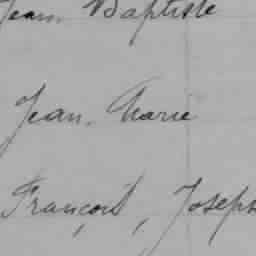 Jean Baptiste
Jean-Marie
François, Joseph